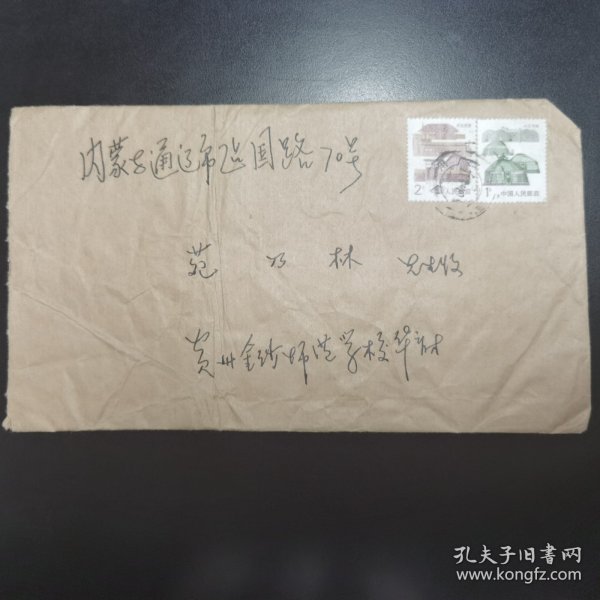 内蒙古通辽市 国路70号
苑乃林 先生收
贵州金沙师范学校华
2
1
中国人民邮政
孔夫子旧书网
www.kongfz.com